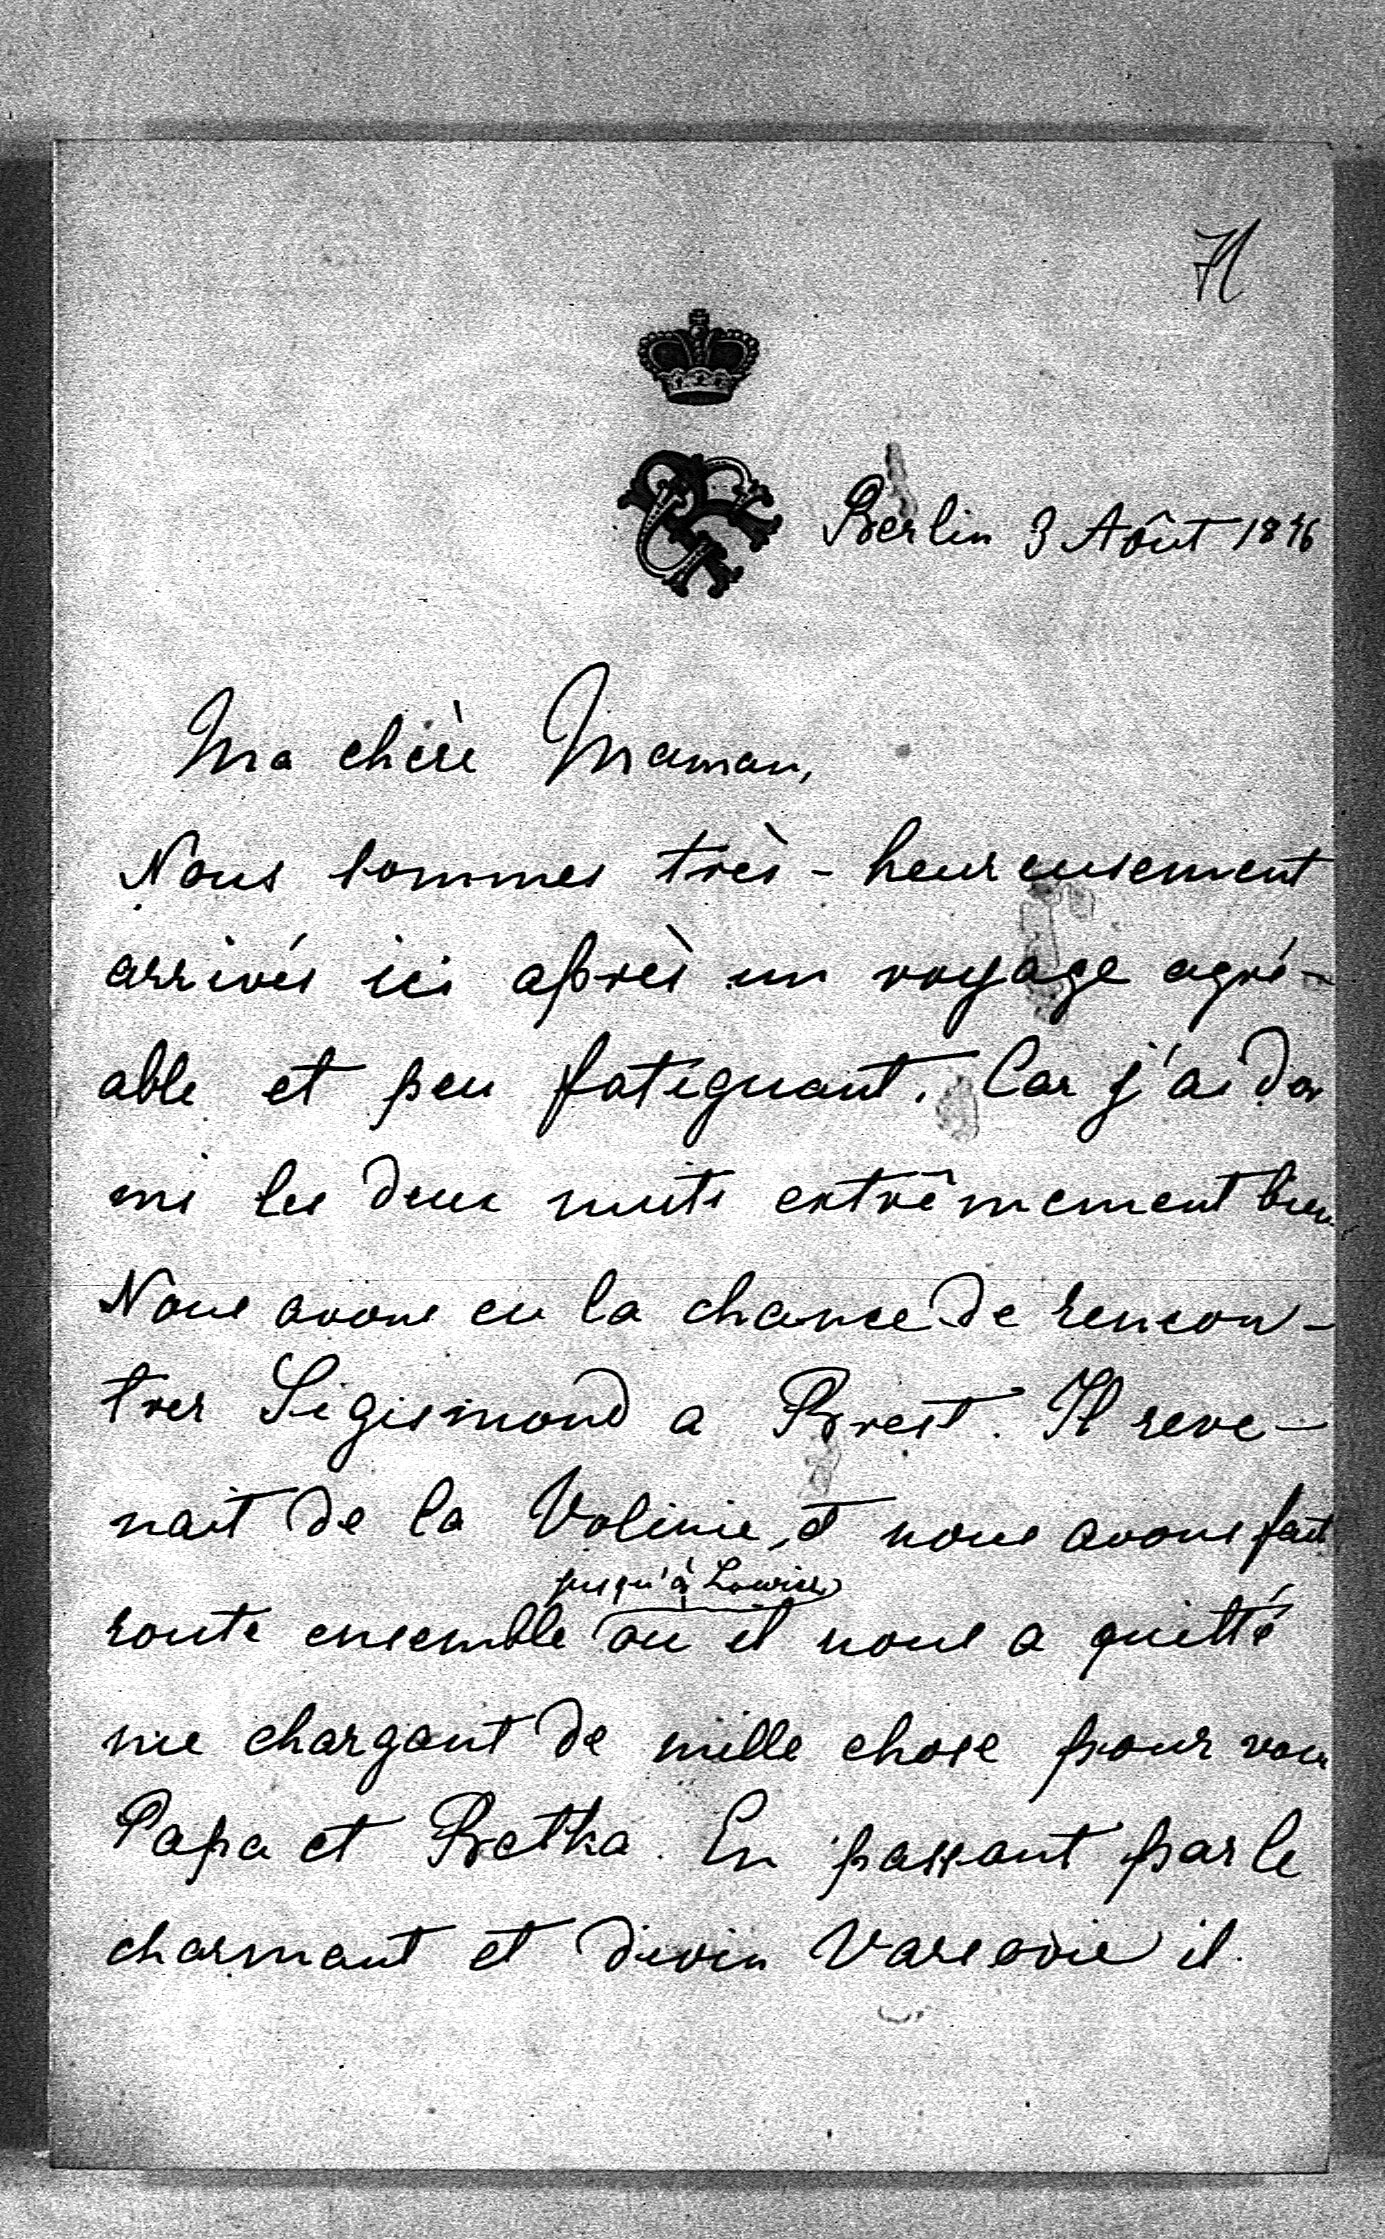 71
Berlin 3 Aôut 1876
Ma chère Maman,
Nous sommes très-heureusement
arrivés ici après un voyage agré-
able et peu fatiguant. Car j'ai dor
mi les deux nuits extrêmement bien.
Nous avons eu la chance de rencon-
trer Sigismond a Brest. Il reve-
nait de la Volinie, et nous avons fait
jusqu'à Lowicz
route ensemble ou il nous a quitté
me chargant de mille chose pour vous
Papa et Betka. En passant par le
charmant et divin Varsovie il